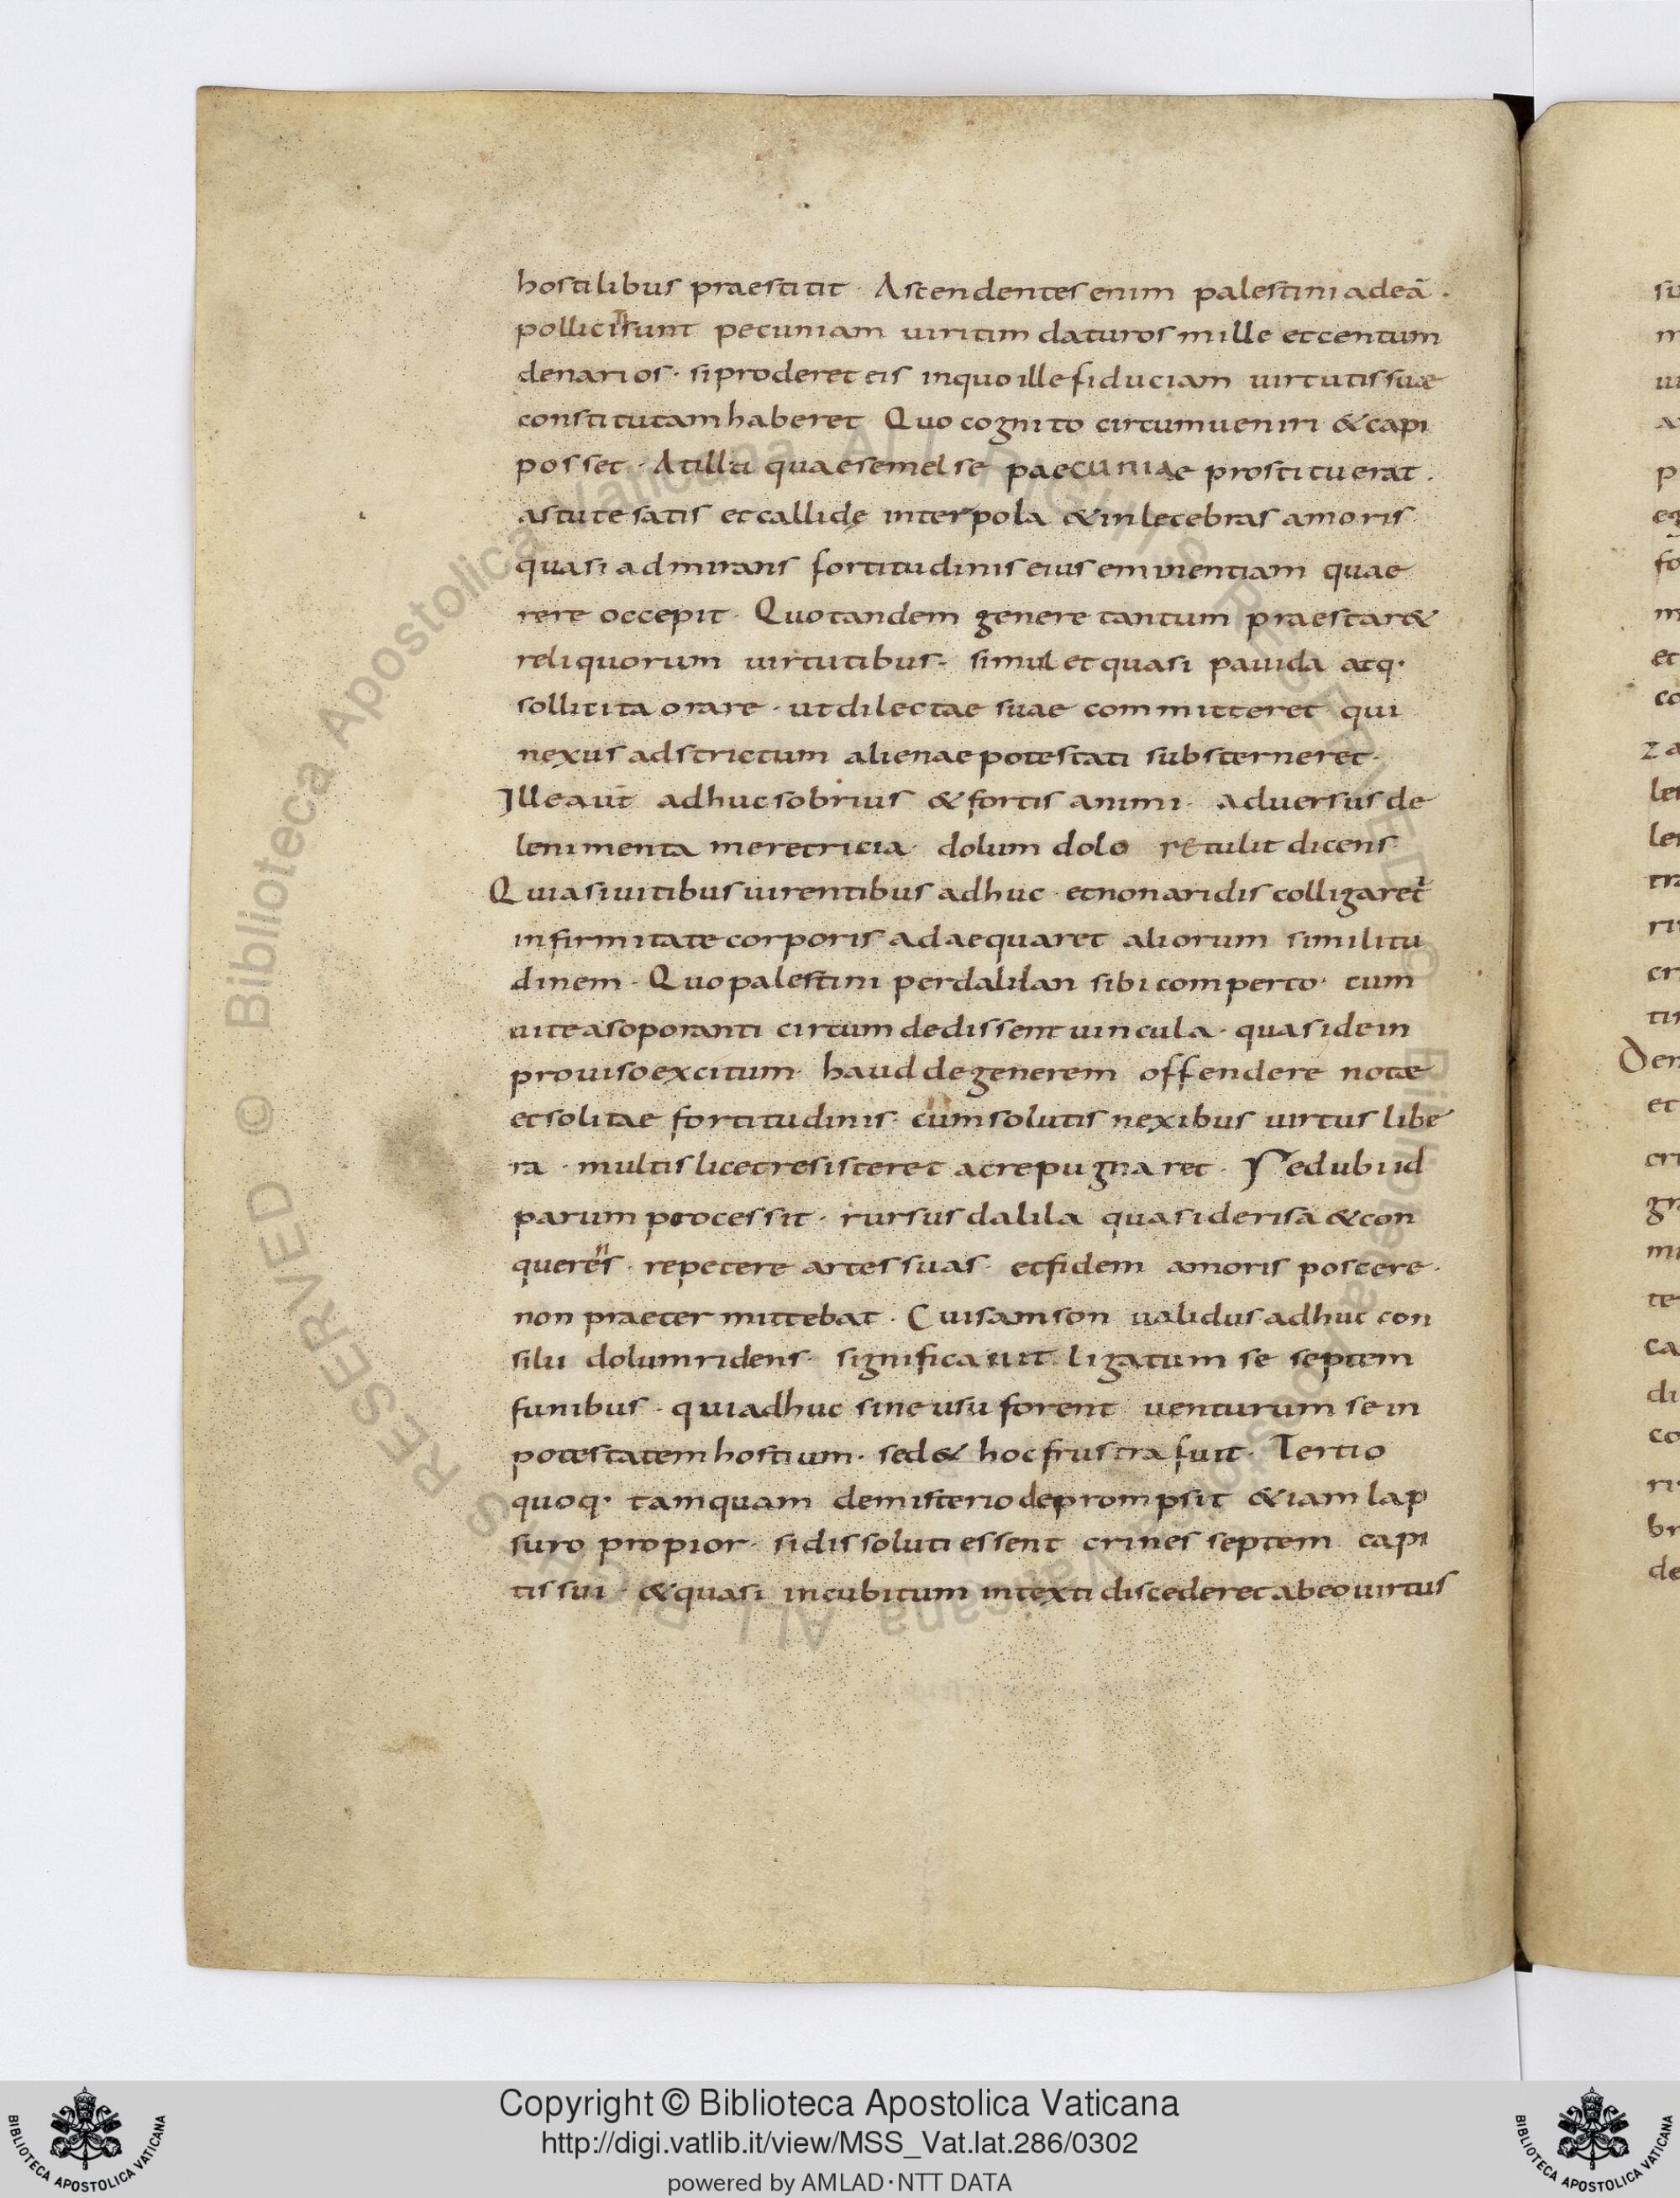 hostilibus praestitit · Ascendentes enim palestini ad eā ·
pollicitisunt pecuniam uiritim daturos mille et centum
denarios · si proderet eis in quo ille fiduciam uirtutis suae
constitutam haberet Quo cognito circumueniri & capi
posset · At illa quae semel se paecuniae prostituerat ·
astute satis et callidę interpola & inlecebras amoris
quasi admirans fortitudinis eius eminentiam quae
rere occepit · Quo tandem genere tantum praestar&
reliquorum uirtutibus · simul et quasi pauida atq·
sollicita orare · ut dilectae suae committeret qui
nexus adstrictum alienae potestati substerneret ·
Ille aut̄ adhuc sobrius & fortis animi · aduersus de
lenimenta meretricia · dolum dolo retulit dicens
Quia si uitibus uirentibus adhuc · et non aridis colligaret̄
infirmitate corporis adaequaret aliorum similitu
dinem · Quo palestini per dalilan sibi comperto · cum
uite a soporanti circumdedissent uincula · quasi de in
prouiso excitum · haud degenerem offendere notae
et solitae fortitudinis · cum solutis nexibus uirtus libe
ra · multis licet resisteret ac repugnaret · Sed ubi id
parum processit · rursus dalila quasi derisa & con
querens · repetere artes suas · et fidem amoris poscere ·
non praetermittebat · Cui samson ualidus adhuc con
silii dolum ridens · significauit ligatum se septem
funibus · qui adhuc sine usu forent uenturum se in
potestatem hostium · sed & hoc frustra fuit · Tertio
quoq· tamquam de misterio deprompsit & iam lap
suro propior · si dissoluti essent crines septem capi
tis sui · & quasi in cubitum intexti discederet ab eo uirtus
Copyright © Biblioteca Apostolica Vaticana
http://digi.vatlib.it/view/MSS_Vat.lat.286/0302
powered by AMLAD·NTT DATA
BIBLIOTECA APOSTOLICA VATICANA
BIBLIOTECA APOSTOLICA VATICANA